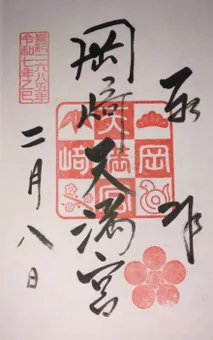 奉拝
岡崎天満宮
二月八日
皇紀二六八五年
令和七年乙巳
一岡
天満宮
崎